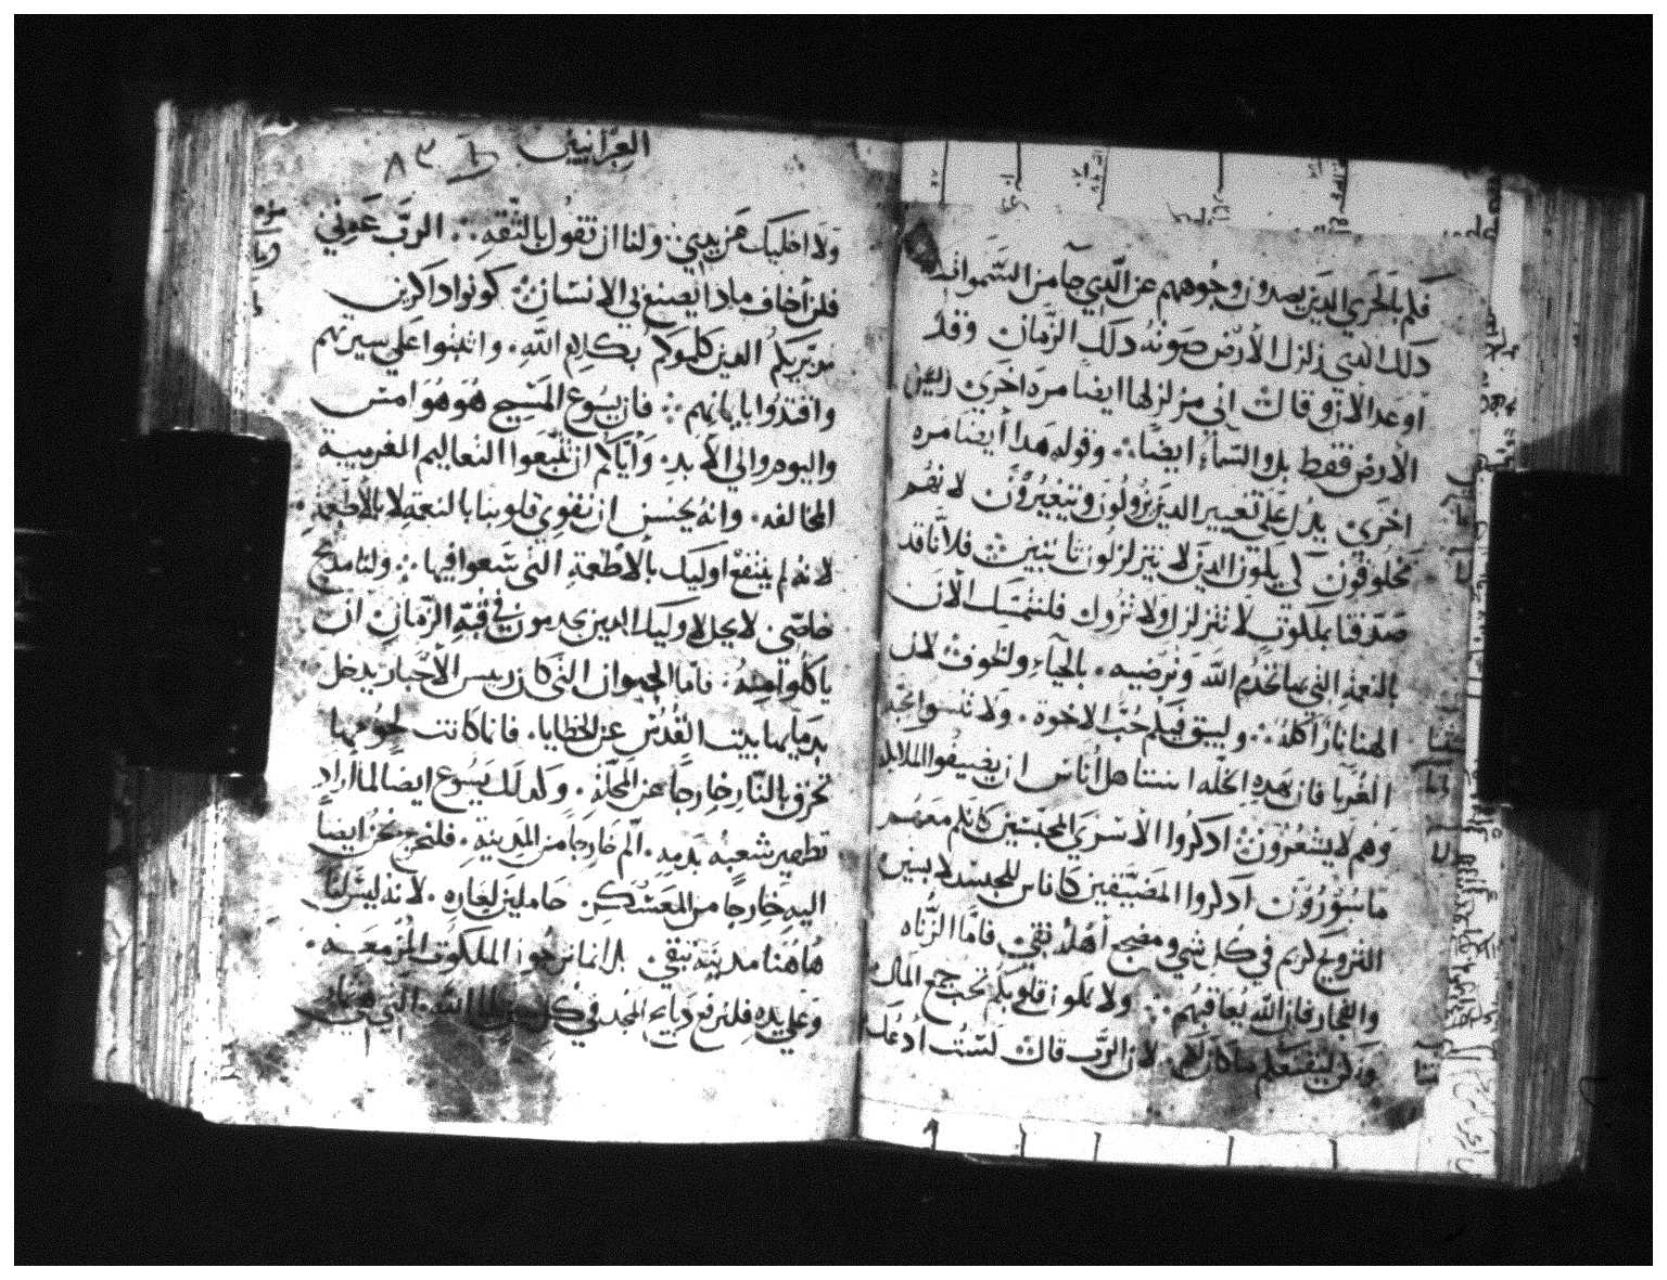 فلم بالحري الذين يصدون وجوههم عن الذي جآ من السموات
ذلك الذي زلزل الارض صوته ذلك الزمان وقد
اوعد الان وقال اني مزلزلها ايضا مره اخري ليس
الارض فقط بل والسمآء ايضا ؞ وقوله هذا أيضا مره
اخري يدل علي تغيير الذين يزولون ويتغيرون لانهم
مخلوقون لكي يكون الذين لا يتزلزلون ثابتين فلانا قد
صدقنا بملكوت لا تتزلزل ولا تزول فلنتمسك الان
بالنعمة التي بها نخدم الله ونرضيه . بالحيآء والخوف لان
الهنا نار آكله ؞ وليبق فيكم حُبّ الاخوة . ولا تنسوا محبة
الغربا فان بهذه الخله استاهل أناس ان يضيفوا الملايكه
وهم لا يشعرون اذكروا الأسري المحبسين كانكم معهم
ماسورون اذكروا المضيقين كاناس للجسد لابسين
التزويج كريم في كل شي ومضجع أهله نقي فاما الزناه
والفجار فان الله يعاقبهم ؞ ولا تكون قلوبكم تحب جمع المال
ولكن ليقنعكم ما كان لكم . لان الرب قال لست أدعك
العبرانيين
ط ٨٣
ولا اخليك من يدي ؞ ولنا ان نقول بالثقه ؞ الرب عوني
فلن أخاف ماذا يصنع لي الانسان كونوا ذاكرين
مدبريكم الذين كلموكم بكلام الله . واثبتوا علي سيرتهم
واقتدوا بايمانهم ؞ فان يسوع المسيح هُو هُو امس
واليوم والي الأبد . وأياكم ان تتبعوا التعاليم الغريبة
المخالفه . وانه يحسن ان نقوي قلوبنا بالنعمة لا بالأطعمة .
لانه لم ينتفع اوليك بالأطعمة التي سعوا فيها ؞ ولنا مذبح
خاصّي لا يحل لاوليك الذين يخدمون في قبة الزمان ان
ياكلوا منه . فاما الحيوان التي كان رييس الأحبار يدخل
بدمايها بيت القدس عن الخطايا . فانما كانت لحومها
تحرق بالنار خارجاً عن المحلة . وكذلك يسوع ايضا لما اراد
تطهير شعبه بدمه . ألم خارجاً من المدينة . فلنخرج نحن ايضاً
اليه خارجا من المعسكر . حاملين لعاره . لانه ليس لنا
هاهنا مدينة تبقي . بل انما نرجوا الملكوت المزمعه .
وعلي يده فلنرفع ذبايح المجد في كل حين لله